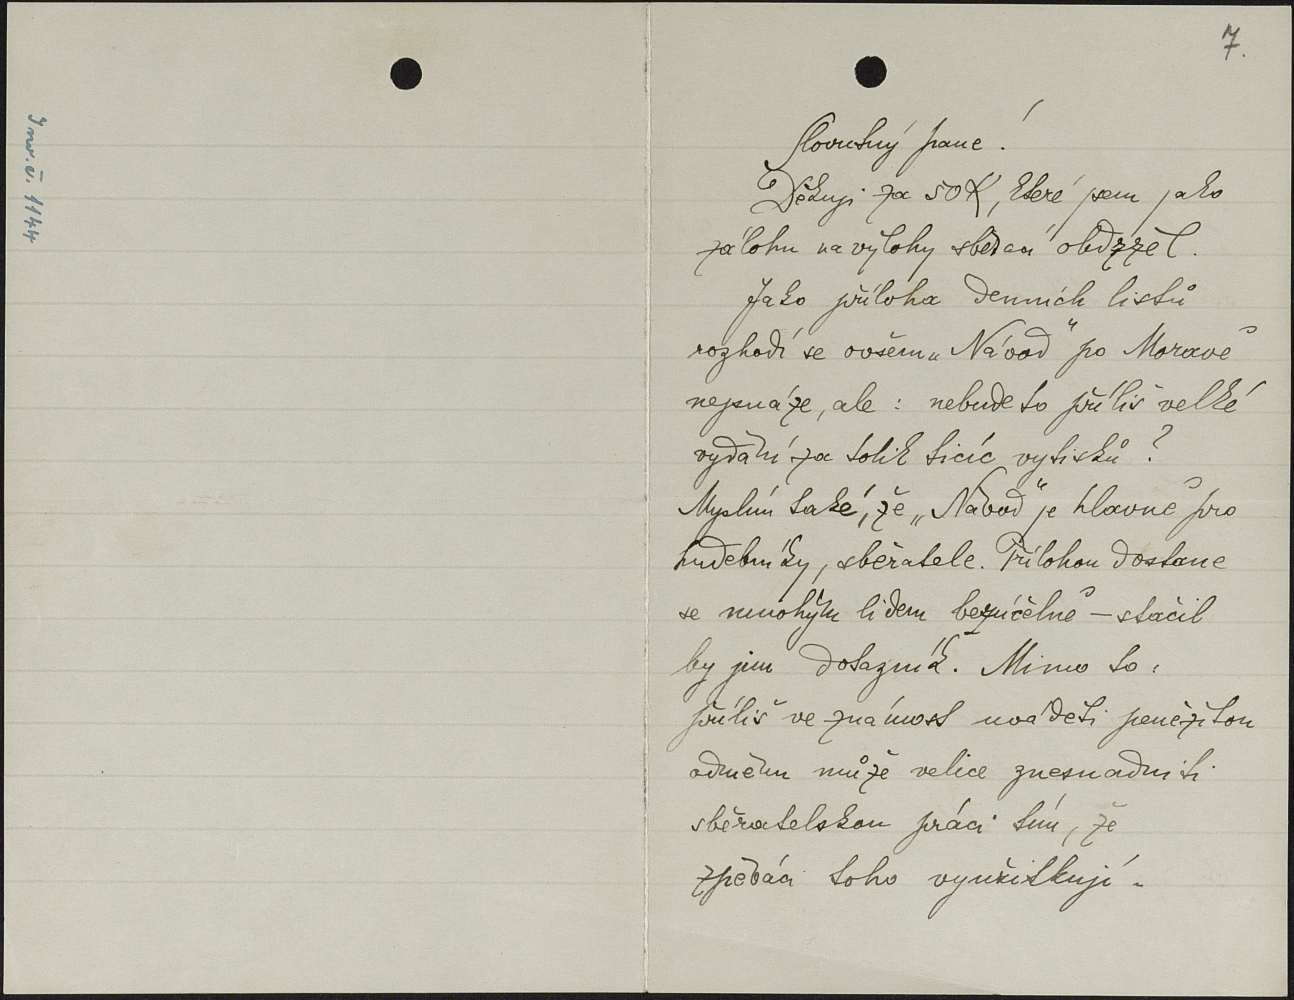 Inv. č. 1144
7.
Slovutný pane!
Děkuji za 50 K, které jsem jako
zálohu na výlohy sbírací obdržel.
Jako příloha denních listů
rozhodí se ovšem „Návod" po Moravě
nejsnáze, ale: nebude to příliš velké
vydání za tolik tisíc výtisků?
Myslím také, že „Návod" je hlavně pro
hudebníky, sběratele. Přílohou dostane
se mnohým lidem bezúčelně – stačil
by jim dotazník. Mimo to:
příliš ve známost uváděti peněžitou
odměnu může velice znesnadniti
sběratelskou práci tím, že
zpěváci toho využitkují.